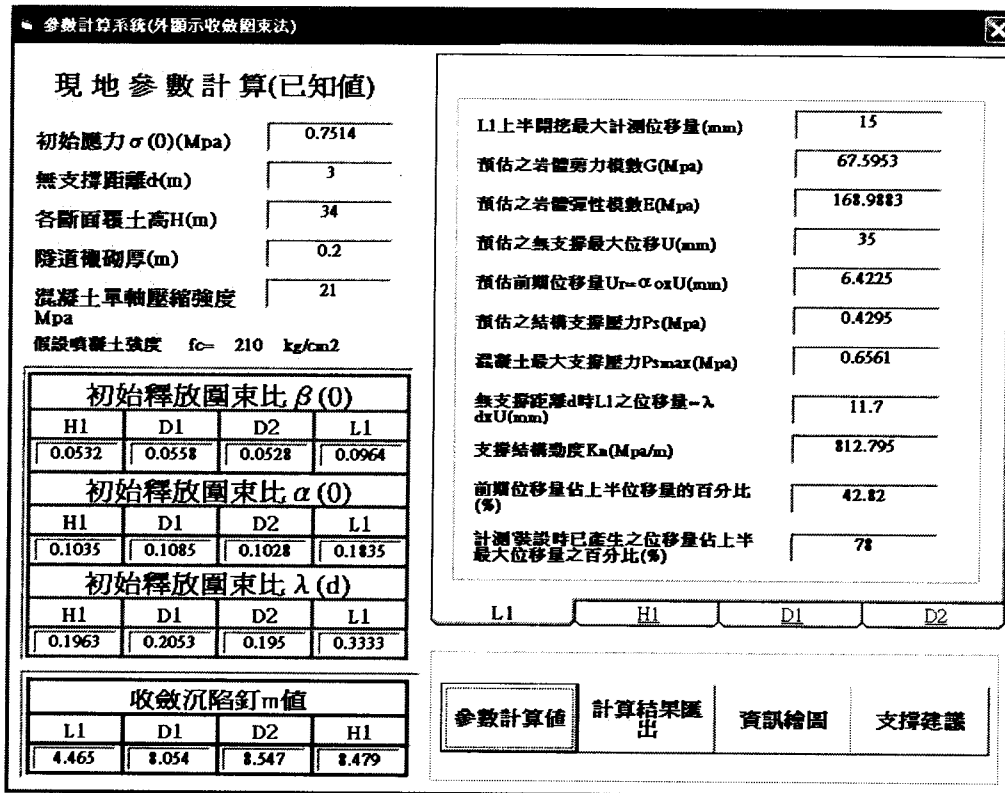 參數計算系統(外顯示收斂圍束法)
現地參數計算(已知值)
初始應力σ(0)(Mpa) 0.7514
無支撐距離d(m) 3
各斷面覆土高H(m) 34
隧道襯砌厚(m) 0.2
混凝土單軸壓縮強度 21
Mpa
假設噴凝土強度 fc= 210 kg/cm2
初始釋放圍束比β(0)
H1 D1 D2 L1
0.0532 0.0558 0.0528 0.0964
初始釋放圍束比α(0)
H1 D1 D2 L1
0.1035 0.1085 0.1028 0.1835
初始釋放圍束比λ(d)
H1 D1 D2 L1
0.1963 0.2053 0.195 0.3333
收斂沉陷釘m值
L1 D1 D2 H1
4.465 8.054 8.547 8.479
L1上半開挖最大計測位移量(mm) 15
預估之岩體剪力模數G(Mpa) 67.5953
預估之岩體彈性模數E(Mpa) 168.9883
預估之無支撐最大位移U(mm) 35
預估前期位移量Ur=αoxU(mm) 6.4225
預估之結構支撐壓力Ps(Mpa) 0.4295
混凝土最大支撐壓力Psmax(Mpa) 0.6561
無支撐距離d時L1之位移量=λ
dxU(mm) 11.7
支撐結構勁度Kn(Mpa/m) 812.795
前期位移量佔上半位移量的百分比
(%) 42.82
計測裝設時已產生之位移量佔上半
最大位移量之百分比(%) 78
L1 H1 D1 D2
參數計算值 計算結果匯出 資訊繪圖 支撐建議